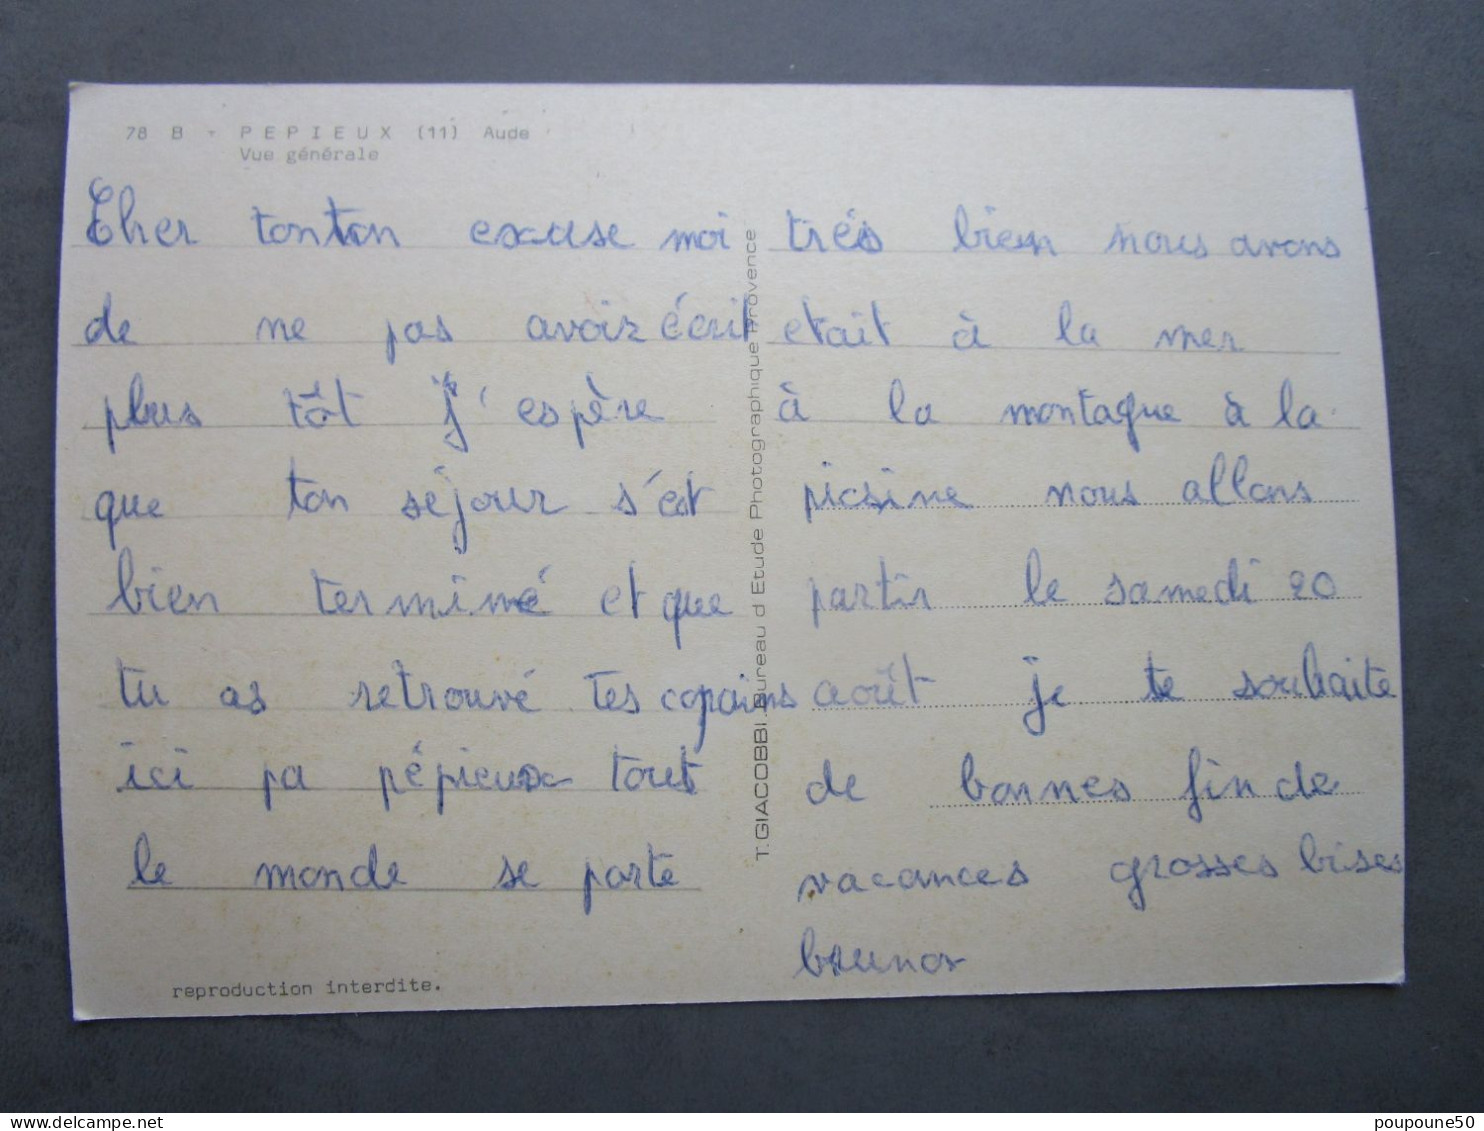 78 B - PEPIEUX (11) Aude
Vue générale
Cher tonton excuse moi
de ne pas avoir écrit
plus tôt j'espère
que ton séjour s'est
bien terminé et que
tu as retrouvé tes copains
ici pa pépieux tout
le monde se porte
reproduction interdite.
T. GIACOBBI Bureau d Etude Photographique Provence
trés bien nous avons
etait à la mer
à la montague à la
picsine nous allons
partir le samedi 20
août je te souhaite
de bonnes fin de
vacances grosses bises
bruno
poupoune50